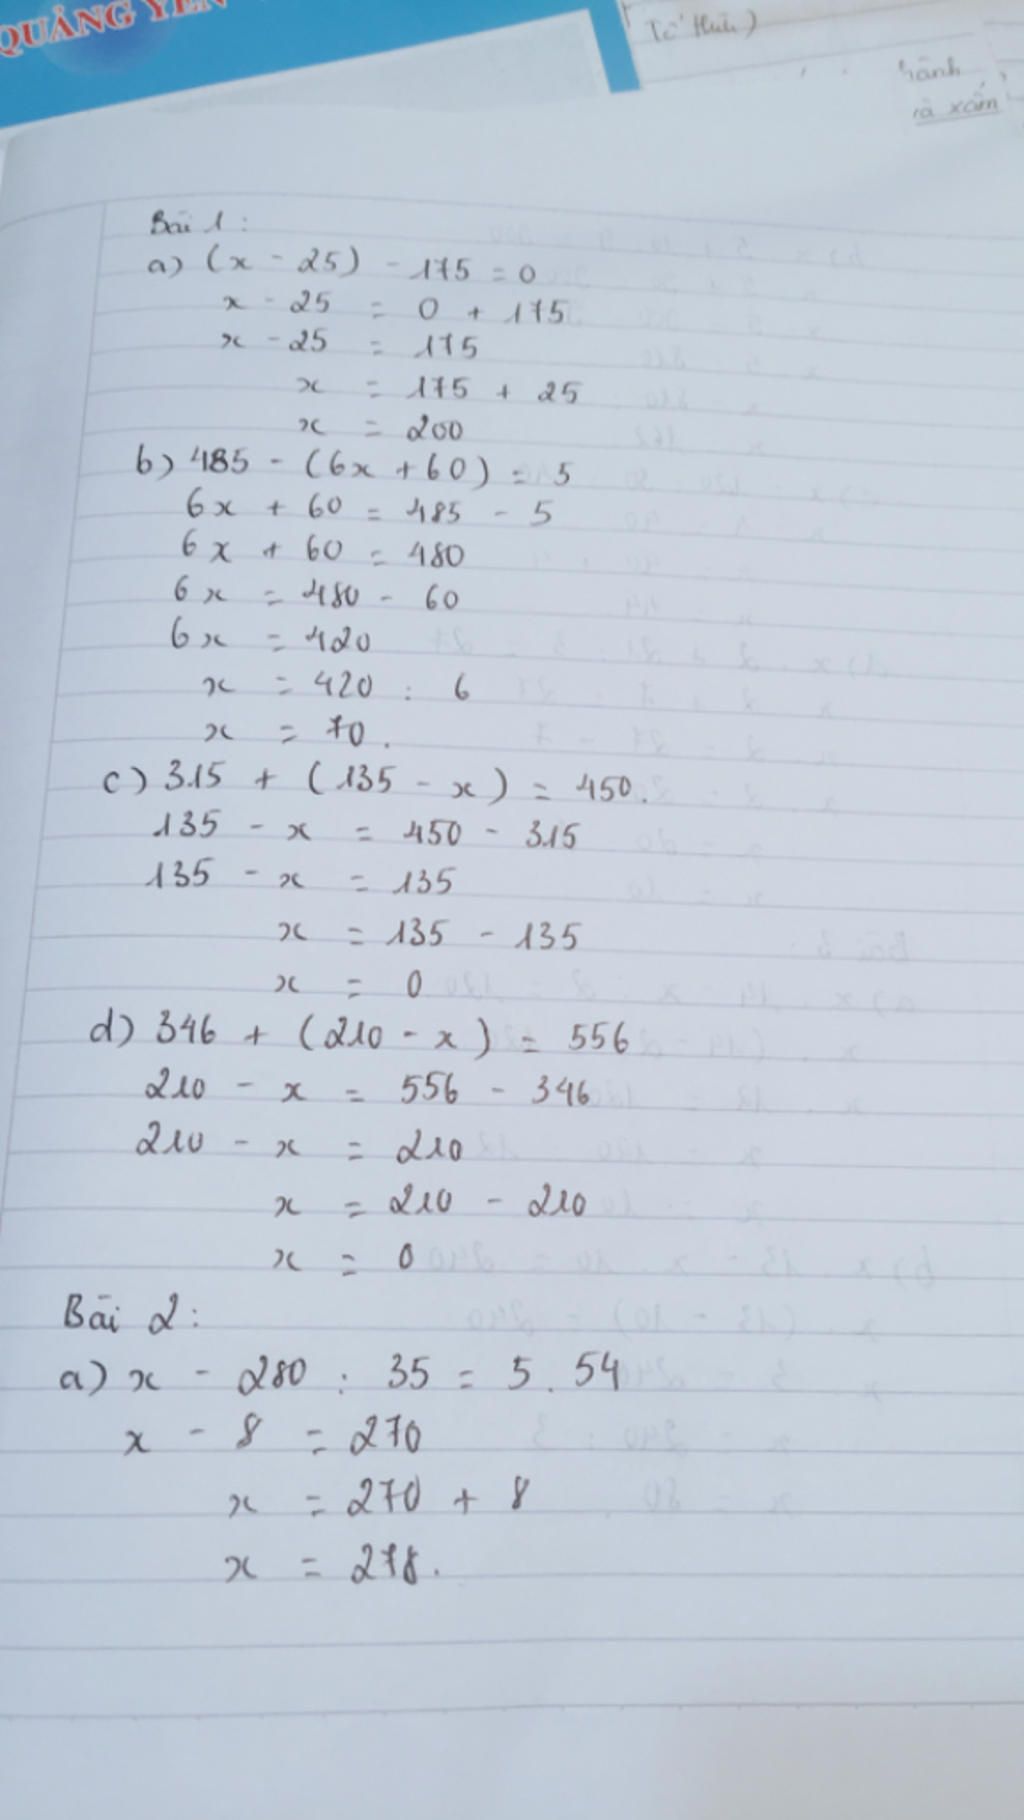 QUẢNG YÊN
Tố Hữu)
xám
Bài 1:
a) (x - 25) - 175 = 0
x - 25 = 0 + 175
x - 25 = 175
x = 175 + 25
x = 200
b) 485 - (6x + 60) = 5
6x + 60 = 485 - 5
6x + 60 = 480
6x = 480 - 60
6x = 420
x = 420 : 6
x = 70.
c) 315 + (135 - x) = 450.
135 - x = 450 - 315
135 - x = 135
x = 135 - 135
x = 0
d) 346 + (210 - x) = 556
210 - x = 556 - 346
210 - x = 210
x = 210 - 210
x = 0
Bài 2:
a) x - 280 : 35 = 5 . 54
x - 8 = 270
x = 270 + 8
x = 278.